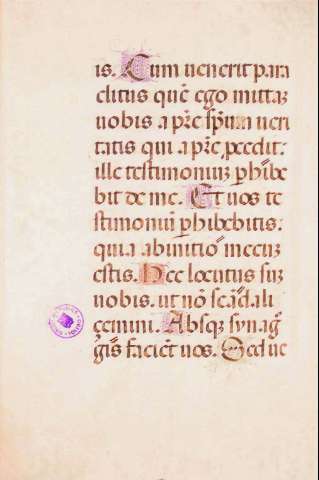 is. Cum uenerit para
clitus quē ego mittaȝ
uobis a pr̄e sp̄um ueri
tatis qui a pr̄e ꝓcedit:
ille testimoniuȝ ꝑhibe
bit de me. Et uos te
stimoniū ꝑhibebitis:
quia ab initio mecuȝ
estis. Hec locutus suȝ
uobis. ut nō scādali
çemini. Absqȝ synag̃
g̃is faciēt uos. Sed ue